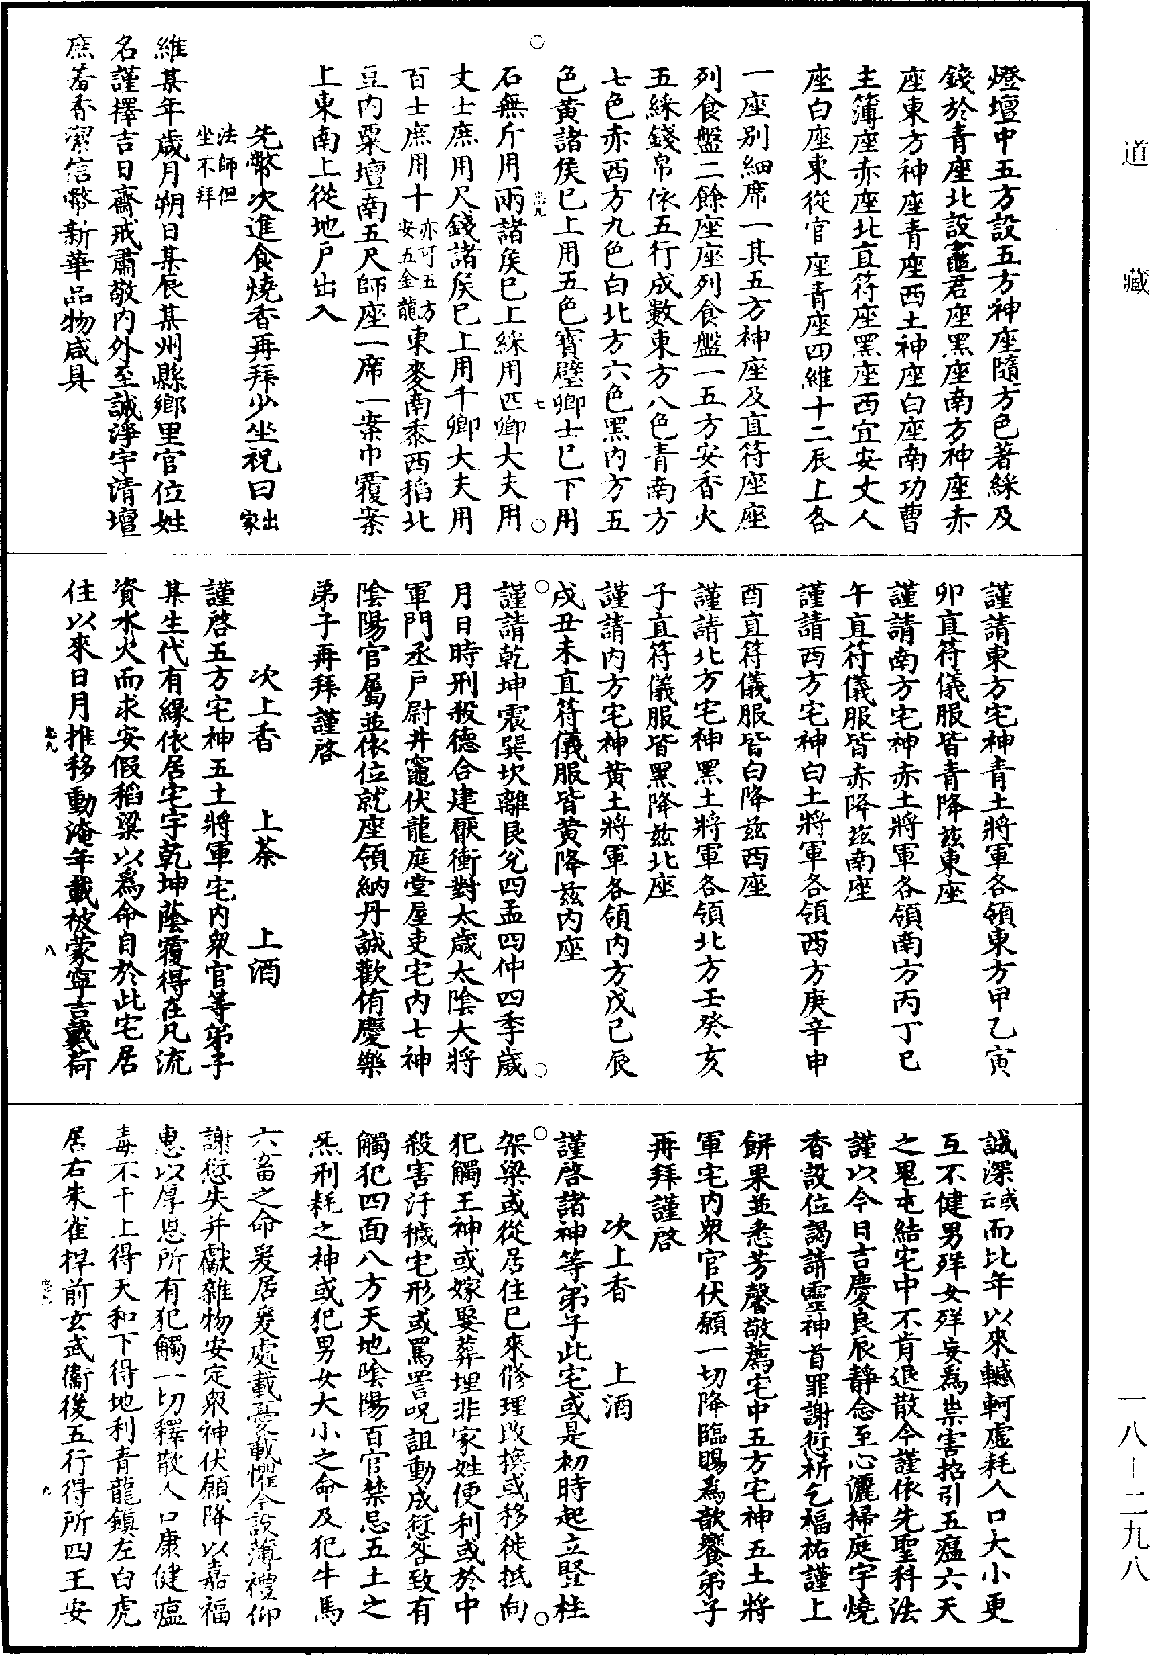 道藏
燈壇中五方設五方神座隨方色著綵及
錢於青座北設竈君座黑座南方神座赤
座東方神座青座西土神座白座南功曹
主簿座赤座北直符座黑座西宜安丈人
座白座東從官座青座四維十二辰上各
一座別細席一其五方神座及直符座座
列食盤二餘座座列食盤一五方安香火
五綵錢帛依五行成數東方八色青南方
七色赤西方九色白北方六色黑內方五
色黃諸侯已上用五色寶璧卿士已下用
石無斤用兩諸侯已上綵用匹卿大夫用
丈士庶用尺錢諸侯已上用千卿大夫用
百士庶用十亦可五方安五金龍東麥南黍西稻北
豆內粟壇南五尺師座一席一案巾覆案
上東南上從地戶出入
先幣次進食燒香再拜少坐祝曰出家
法師但坐不拜
維某年歲月朔日某辰某州縣鄉里官位姓
名謹擇吉日齋戒肅敬內外至誠淨宇清壇
庶羞香潔信幣新華品物咸具
謹請東方宅神青土將軍各領東方甲乙寅
卯直符儀服皆青降茲東座
謹請南方宅神赤土將軍各領南方丙丁巳
午直符儀服皆赤降茲南座
謹請西方宅神白土將軍各領西方庚辛申
酉直符儀服皆白降茲西座
謹請北方宅神黑土將軍各領北方壬癸亥
子直符儀服皆黑降茲北座
謹請內方宅神黃土將軍各領內方戊己辰
戌丑未直符儀服皆黃降茲內座
謹請乾坤震巽坎離艮兌四孟四仲四季歲
月日時刑殺德合建厭衝對太歲太陰大將
軍門丞戶尉井竈伏龍庭堂屋吏宅內七神
陰陽官屬並依位就座領納丹誠歡侑慶樂
弟子再拜謹啓
次上香 上茶 上酒
謹啓五方宅神五土將軍宅內眾官等弟子
某生代有緣依居宅宇乾坤蔭覆得在凡流
資水火而求安假稻粱以為命自於此宅居
住以來日月推移動淹年載被蒙寧吉戴荷
誠深誠而比年以來轗軻虛耗人口大小更
互不健男殃女殃妄為祟害招引五瘟六天
之鬼屯結宅中不肯退散今謹依先聖科法
謹以今日吉慶良辰靜念至心灑掃庭宇燒
香設位謁請靈神首罪謝愆祈乞福祐謹上
餅果並悉芳馨敬薦宅中五方宅神五土將
軍宅內眾官伏願一切降臨賜為歆饗弟子
再拜謹啓
次上香 上酒
謹啓諸神等弟子此宅或是初時起立豎柱
架梁或從居住已來修理改換或移徙抵向
犯觸王神或嫁娶葬埋非家姓便利或於中
殺害汙穢宅形或罵詈呪詛動成愆咎致有
觸犯四面八方天地陰陽百官禁忌五土之
炁刑耗之神或犯男女大小之命及犯牛馬
六畜之命爰居爰處載憂載懼今設薄禮仰
謝愆失并獻雜物安定眾神伏願降以嘉福
惠以厚恩所有犯觸一切釋散人口康健瘟
毒不干上得天和下得地利青龍鎮左白虎
居右朱雀桿前玄武衛後五行得所四王安
一八—二九八